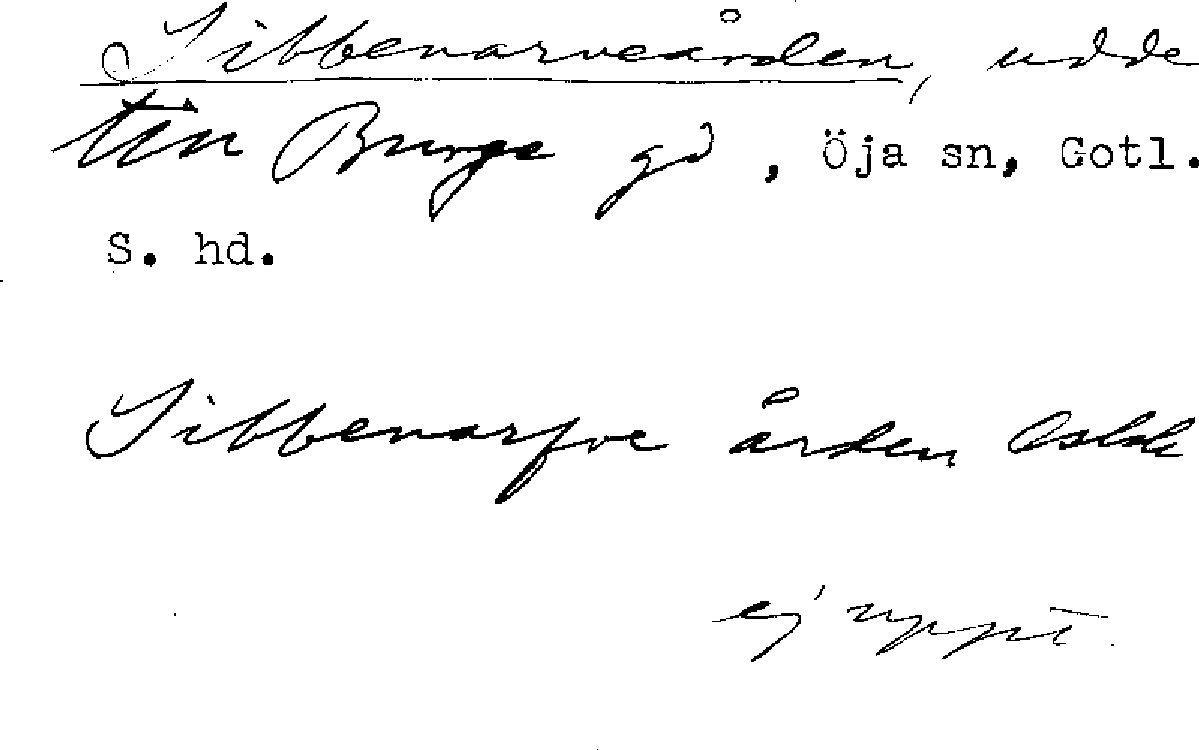 Sibbenarveården, udde
till Burge gd, Öja sn, Gotl.
S. hd.
Sibbenarfve ården
ej uppt.